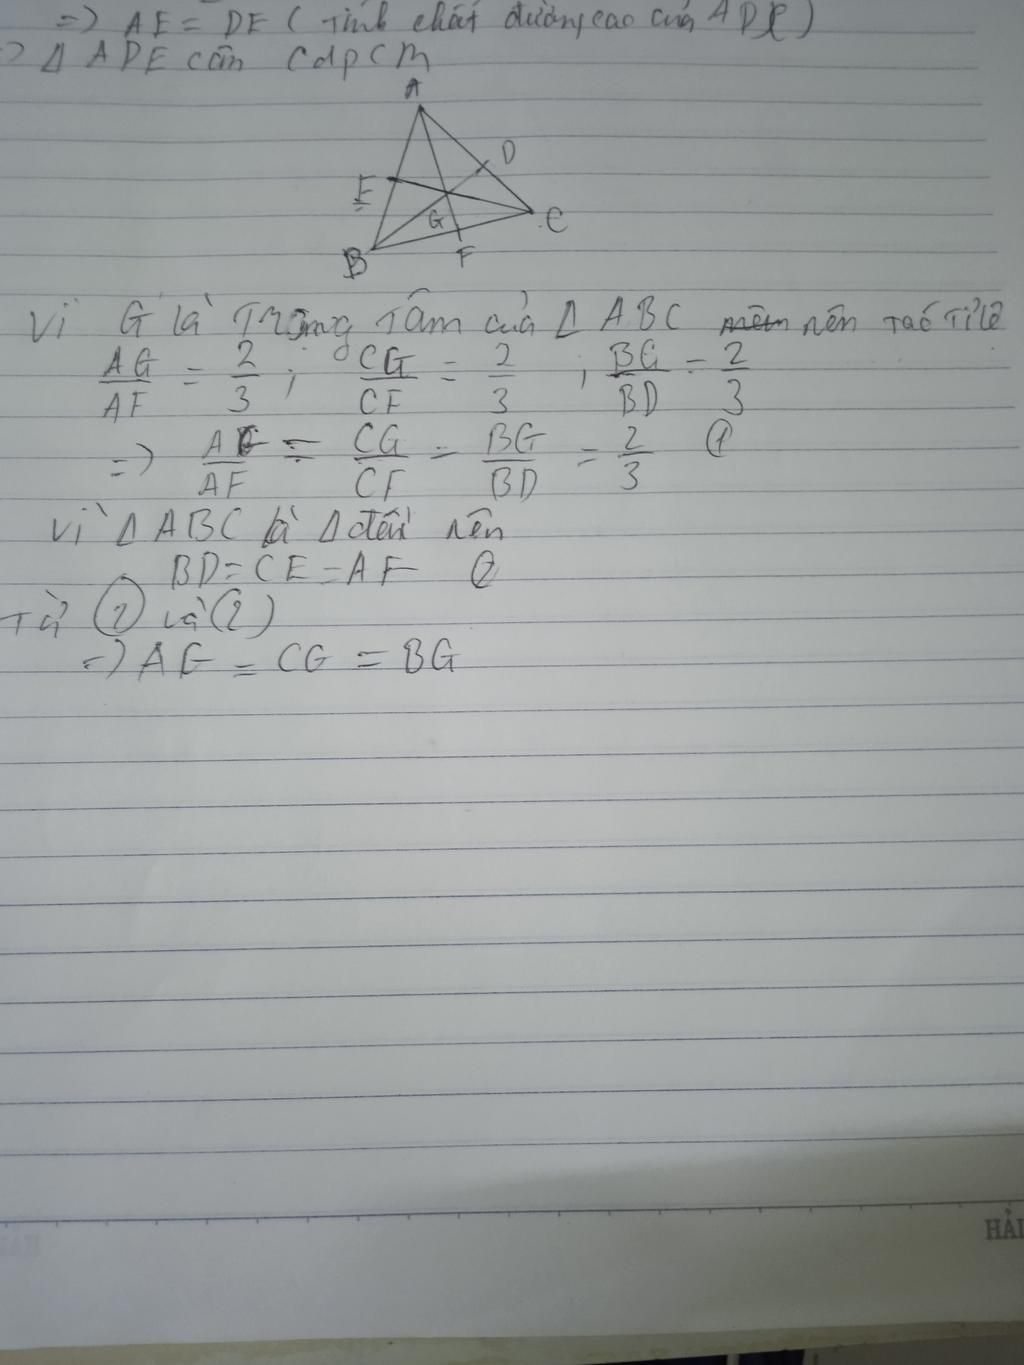 => AE = DE ( Tính chất đường cao của ADE )
=> Δ ADE cân CdpCM
A
D
E
G
C
B
F
Vì G là Trọng Tâm của Δ ABC nên ta có Tỉ lệ
AG/AF = 2/3 ; CG/CF = 2/3 ; BG/BD = 2/3
=> AG/AF = CG/CF = BG/BD = 2/3 ①
Vì Δ ABC là Δ đều nên
BD = CE = AF ②
Từ ① và ②
=> AG = CG = BG
HẢI